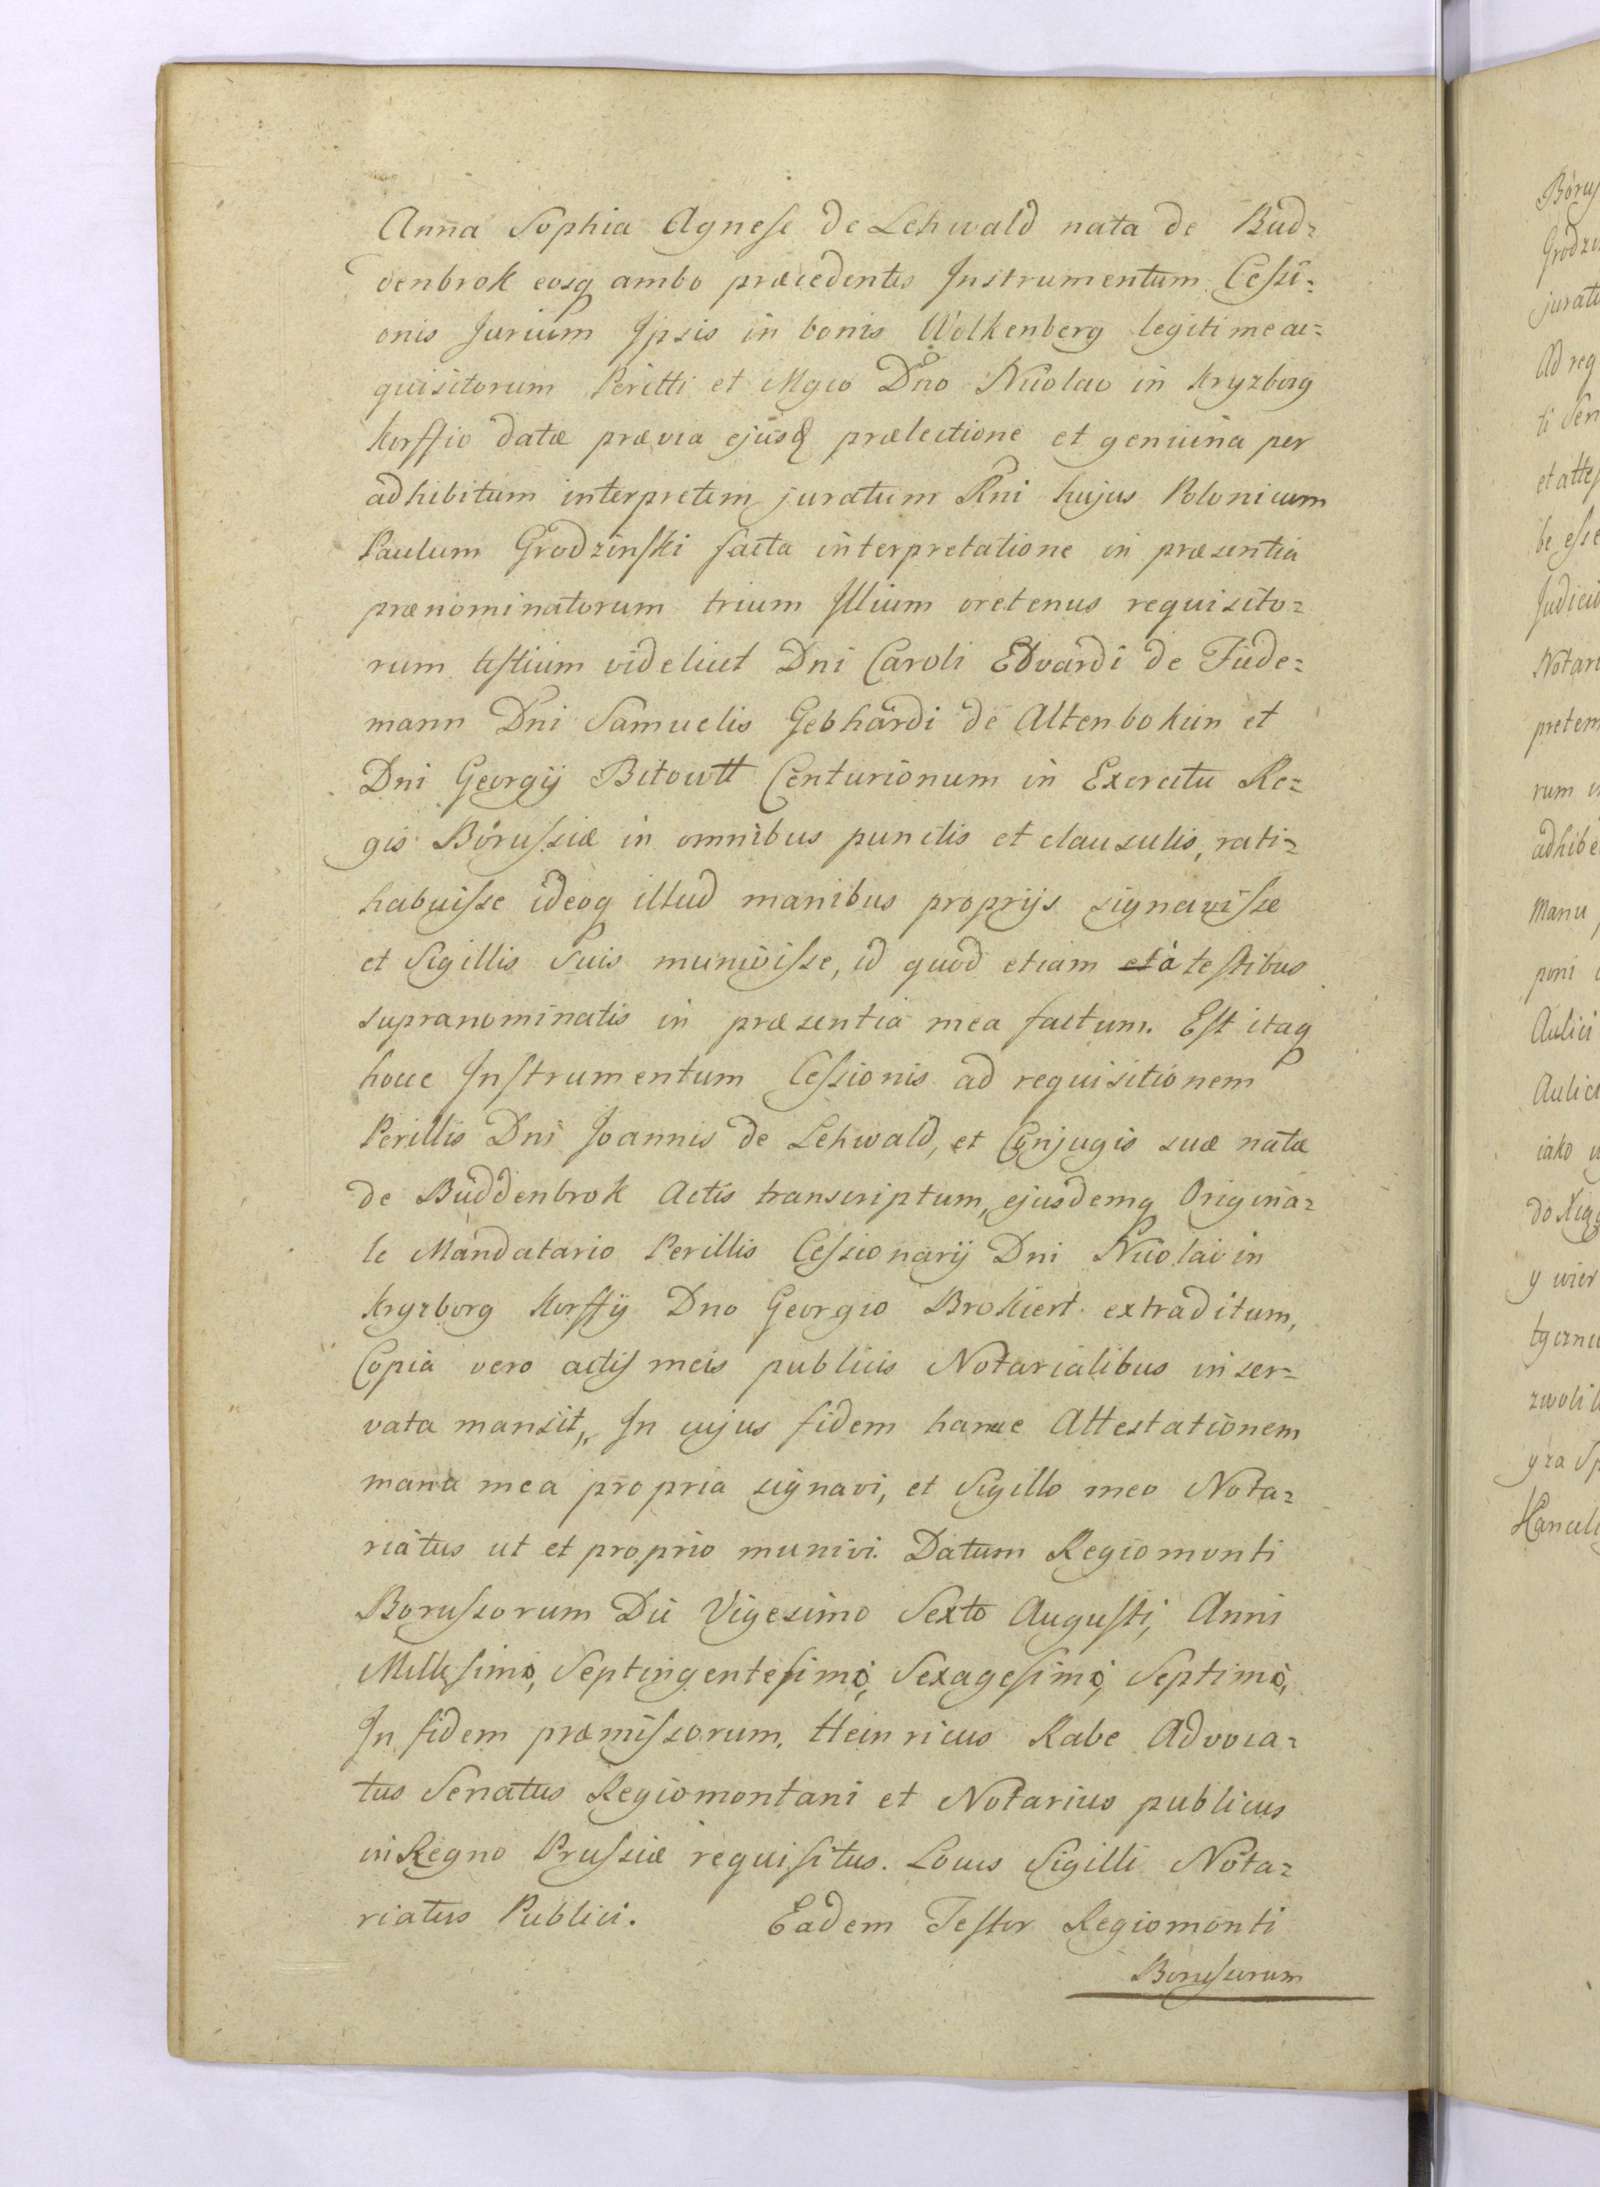 Anna Sophia Agnese de Lehwald nata de Bud=
denbrok eosq ambo præcedentis Instrumentum Cessi=
onis Jurium Ipsis in bonis Wolkenberg legitime ac=
quisitorum Perilli et Mgco Dno Nicolao in Kryzborg
Korffio datæ prævia ejusq prælectione et genuina per
adhibitum interpretem juratum Rni hujus Polonicum
Paulum Grodzinski facta interpretatione in præsentia
prænominatorum trium Illium oretenus requisito=
rum testium videlicet Dni Caroli Edvardi de Tide=
mann Dni Samuelis Gebhardi de Altenbokun et
Dni Georgij Bitowtt Centurionum in Exercitu Re=
gis Borussiæ in omnibus punctis et clausulis, rati=
habuisse ideoq illud manibus proprijs signavisse
et Sigillis Suis munivisse, id quod etiam et à testibus
supranominatis in præsentia mea factum. Est itaq
hocce Instrumentum Cessionis ad requisitionem
Perillis Dni Joannis de Lehwald, et Conjugis suæ natæ
de Buddenbrok Actis transcriptum, ejusdemq Origina=
le Mandatario Perillis Cessionarij Dni Nicolai in
Kryzborg Korffij Dno Georgio Brokiert extraditum,
Copia vero actis meis publicis Notarialibus inser=
vata mansit, In cujus fidem hance Attestationem
manu mea propria signavi, et Sigillo meo Nota=
riatus ut et proprio munivi. Datum Regiomonti
Borussorum Die Vigesimo Sexto Augusti, Anni
Millesimo, Septingentesimo, Sexagesimo, Septimo,
In fidem præmissorum. Heinricus Rabe Advoca=
tus Senatus Regiomontani et Notarius publicus
in Regno Prussiæ requisitus. Locus Sigilli Nota=
riatus Publici. Eadem Testor Regiomonti
Borussorum